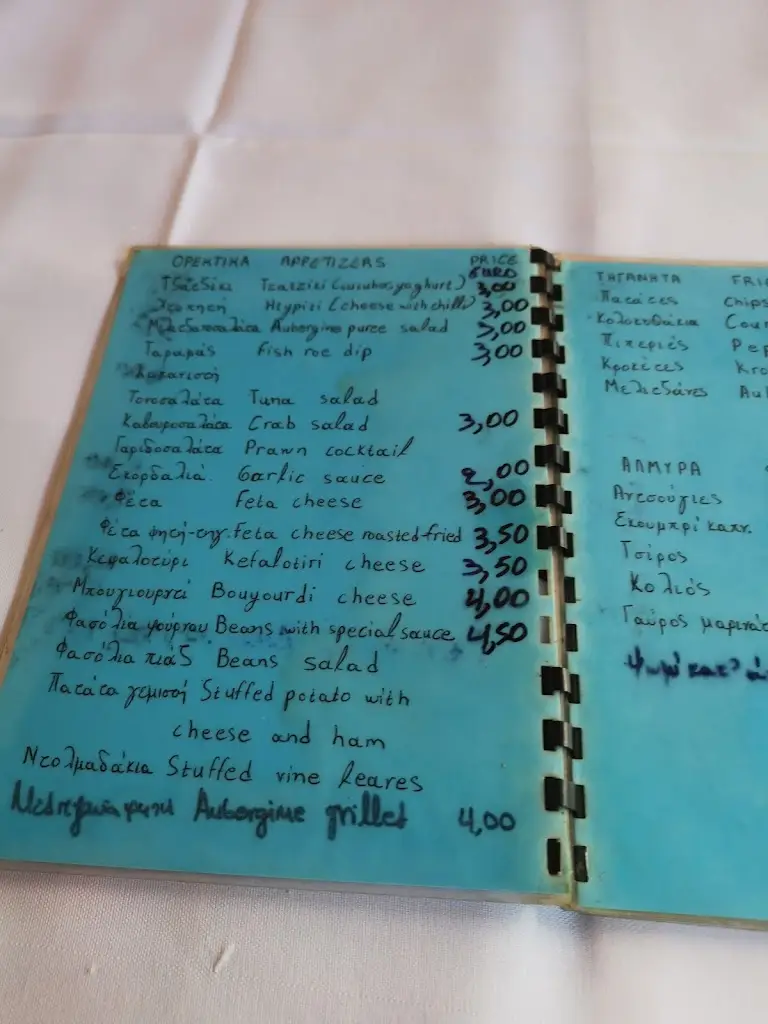 ΟΡΕΚΤΙΚΑ APPETIZERS PRICE
EURO
Τζαζίκι Tzatziki (cucuber, yoghurt) 3,00
Htypiti (cheese with chills) 3,00
Μελιτζανοσαλάτα Aubergine puree salad 3,00
Ταραμάς Fish roe dip 3,00
Τονοσαλάτα Tuna salad
Καβουροσαλάτα Crab salad 3,00
Γαριδοσαλάτα Prawn cocktail
Σκορδαλιά Garlic sauce 2,00
Φέτα Feta cheese 3,00
Φέτα ψητή-τηγ. Feta cheese roasted-fried 3,50
Κεφαλοτύρι Kefalotiri cheese 3,50
Μπουγιουρντί Bouyourdi cheese 4,00
Φασόλια φούρνου Beans with special sauce 4,50
Φασόλια πιάζ Beans salad
Πατάτα γεμιστή Stuffed potato with
cheese and ham
Ντολμαδάκια Stuffed vine leares
Aubergine grillet 4,00
ΤΗΓΑΝΗΤΑ FRI
Πατάτες Chips
Κολοκυθάκια Cour
Πιπεριές Pep
Κροκέτες Kro
Μελιτζάνες Au
ΑΛΜΥΡΑ
Αντσούγιες
Σκουμπρί καπν.
Τσίρος
Κολιός
Γαύρος μαρινάτ
Ψωμί κατ'